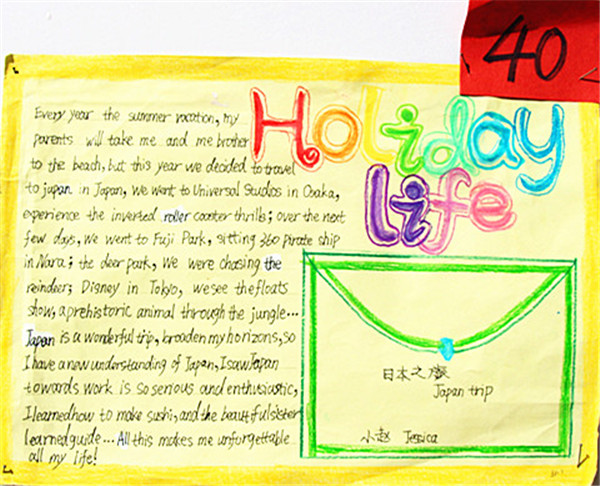 40
Holiday
life
Every year the summer vacation, my
parents will take me and me brother
to the beach, but this year we decided to travel
to japan in Japan, we want to Universal Studios in Osaka,
experience the inverted roller coaster thrills; over the next
few days, we went to Fuji Park, sitting 360 pirate ship
in Nara; the deer park, we were chasing the
reindeer; Disney in Tokyo, we see the floats
show, a prehistoric animal through the jungle...
Japan is a wonderful trip, broaden my horizons, so
I have a new understanding of Japan, I saw Japan
towards work is so serious and enthustiastic,
I learned how to make sushi, and the beautiful sister
learned guide... All this makes me unforgettable
all my life!
日本之旅
Japan trip
小赵 Jessica